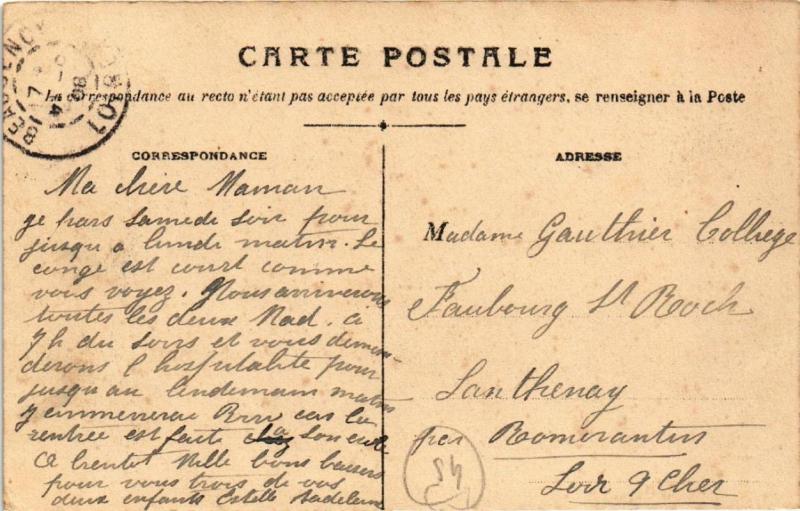 CARTE POSTALE
La correspondance au recto n'étant pas acceptée par tous les pays étrangers, se renseigner à la Poste
CORRESPONDANCE
Ma chère Maman
je pars samedi soir pour
jusqu'a lundi matin. Le
congé est court comme
vous voyez. Nous arriverons
toutes les deux Mad. a
7h du soir et vous deman-
derons l'hospitalité pour
jusqu'au lendemain matin
J'emmenerai car la
rentrée est faite a son ecole
A bientot Mille bons baisers
pour vous trois de vos
deux enfants Estelle Madeleine
ADRESSE
Madame Gauthier Collrege
Faubourg St Roch
Santhenay
par Romorantin
Loir & Cher
54